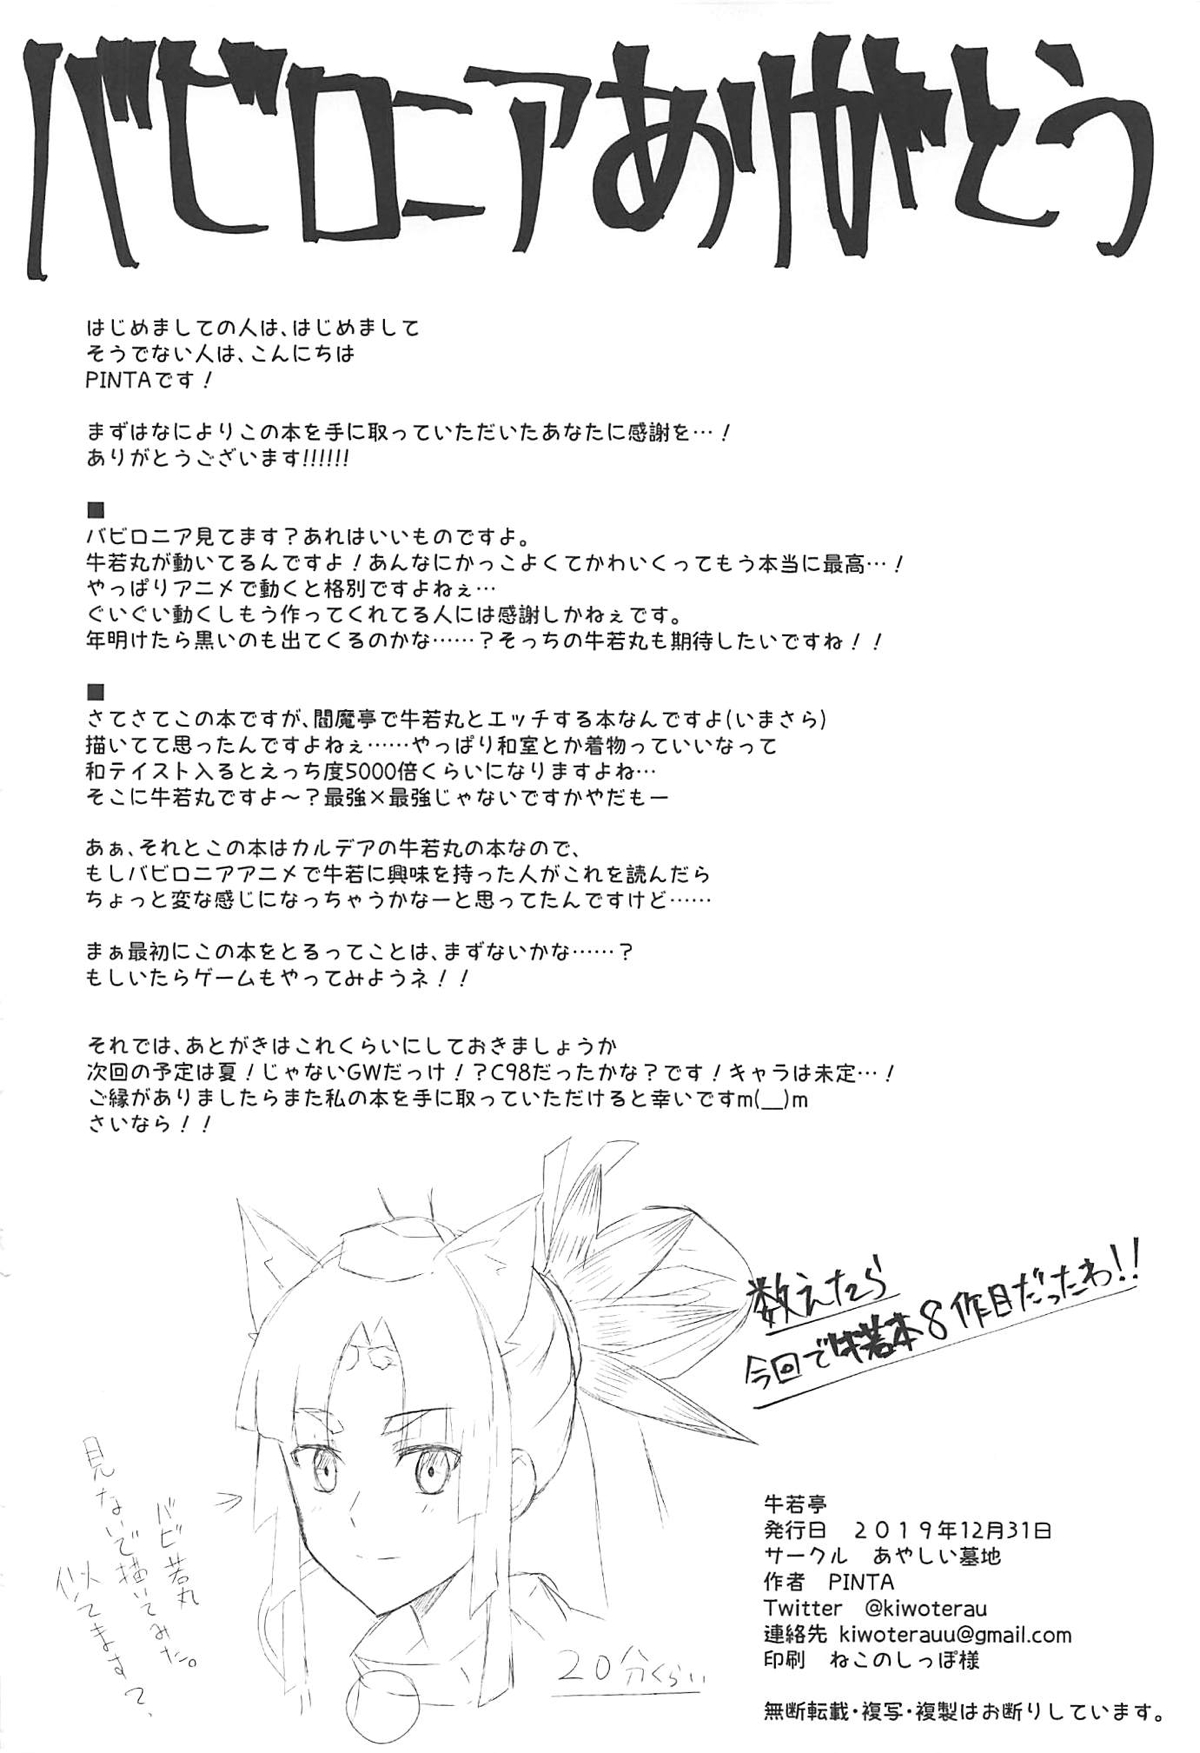 バビロニアありがとう
はじめましての人は、はじめまして
そうでない人は、こんにちは
PINTAです！
まずはなによりこの本を手に取っていただいたあなたに感謝を…！
ありがとうございます!!!!!!
■
バビロニア見てます？あれはいいものですよ。
牛若丸が動いてるんですよ！あんなにかっこよくてかわいくってもう本当に最高…！
やっぱりアニメで動くと格別ですよねぇ…
ぐいぐい動くしもう作ってくれてる人には感謝しかねぇです。
年明けたら黒いのも出てくるのかな……？そっちの牛若丸も期待したいですね！！
■
さてさてこの本ですが、閻魔亭で牛若丸とエッチする本なんですよ(いまさら)
描いてて思ったんですよねぇ……やっぱり和室とか着物っていいなって
和テイスト入るとえっち度5000倍くらいになりますよね…
そこに牛若丸ですよ～？最強×最強じゃないですかやだもー
あぁ、それとこの本はカルデアの牛若丸の本なので、
もしバビロニアアニメで牛若に興味を持った人がこれを読んだら
ちょっと変な感じになっちゃうかなーと思ってたんですけど……
まぁ最初にこの本をとるってことは、まずないかな……？
もしいたらゲームもやってみようネ！！
それでは、あとがきはこれくらいにしておきましょうか
次回の予定は夏！じゃないGWだっけ！？C98だったかな？です！キャラは未定…！
ご縁がありましたらまた私の本を手に取っていただけると幸いですm(__)m
さいなら！！
数えたら
今回で牛若本8作目だったわ!!
バビ若丸
見ないで描いてみた。
似てます？、
20分くらい
牛若亭
発行日　２０１９年12月31日
サークル　あやしい墓地
作者　PINTA
Twitter　@kiwoterau
連絡先 kiwoterauu@gmail.com
印刷　ねこのしっぽ様
無断転載・複写・複製はお断りしています。